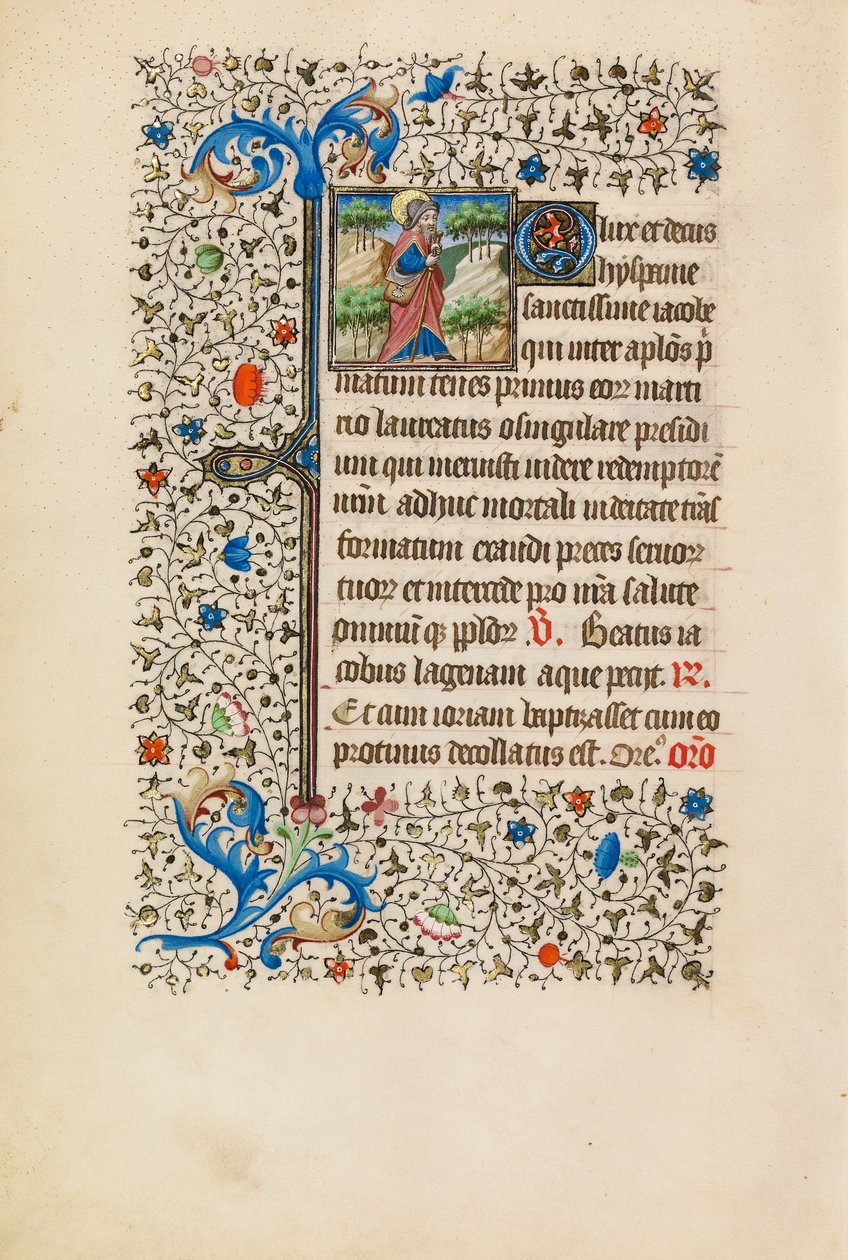 O lux et decus
hyspanie
sanctissime iacobe
qui inter aplōs p̄
matum tenes primus eorꝝ marti
rio laureatus o singulare presidi
um qui meruisti videre redemptorē
nr̄m adhuc mortali in deitate trās
formatum exaudi preces seruorꝝ
tuorꝝ et intercede pro nr̄a salute
omniū qꝫ pplōrꝝ .V̄. Beatus ia
cobus lagenam aque pecijt. R̄.
Et cum ioriam baptizasset cum eo
protinus decollatus est. Ore. or̄o